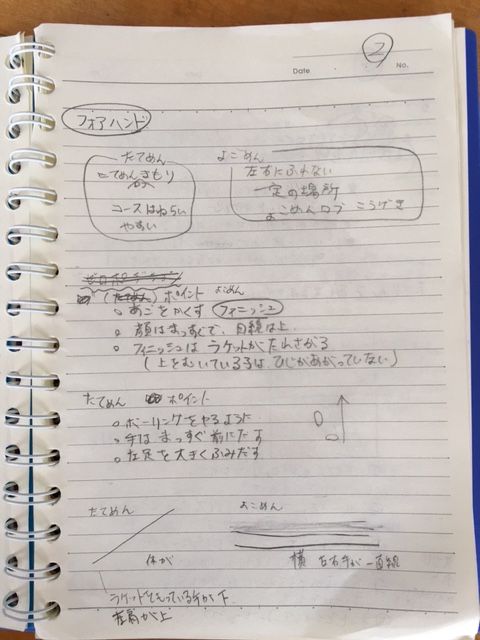 2
Date
No.
フォアハンド
たてめん
たてめんさもり
コースはねらい
やすい
よこめん
左右にふれない
一定の場所
よこめんロブ こうげき
ポイント よこめん
。あごをかくす フィニッシュ
。顔はまっすぐで、目線は上
。フィニッシュはラケットがたれさがる
(上をむいている子は ひじがあがってしない)
たてめん ポイント
。ボーリングをやるように
。手はまっすぐ前にだす
。左足を大きくふみだす
たてめん
よこめん
体が
横 左右手が一直線
ラケットをもっている手が下
左肩が上